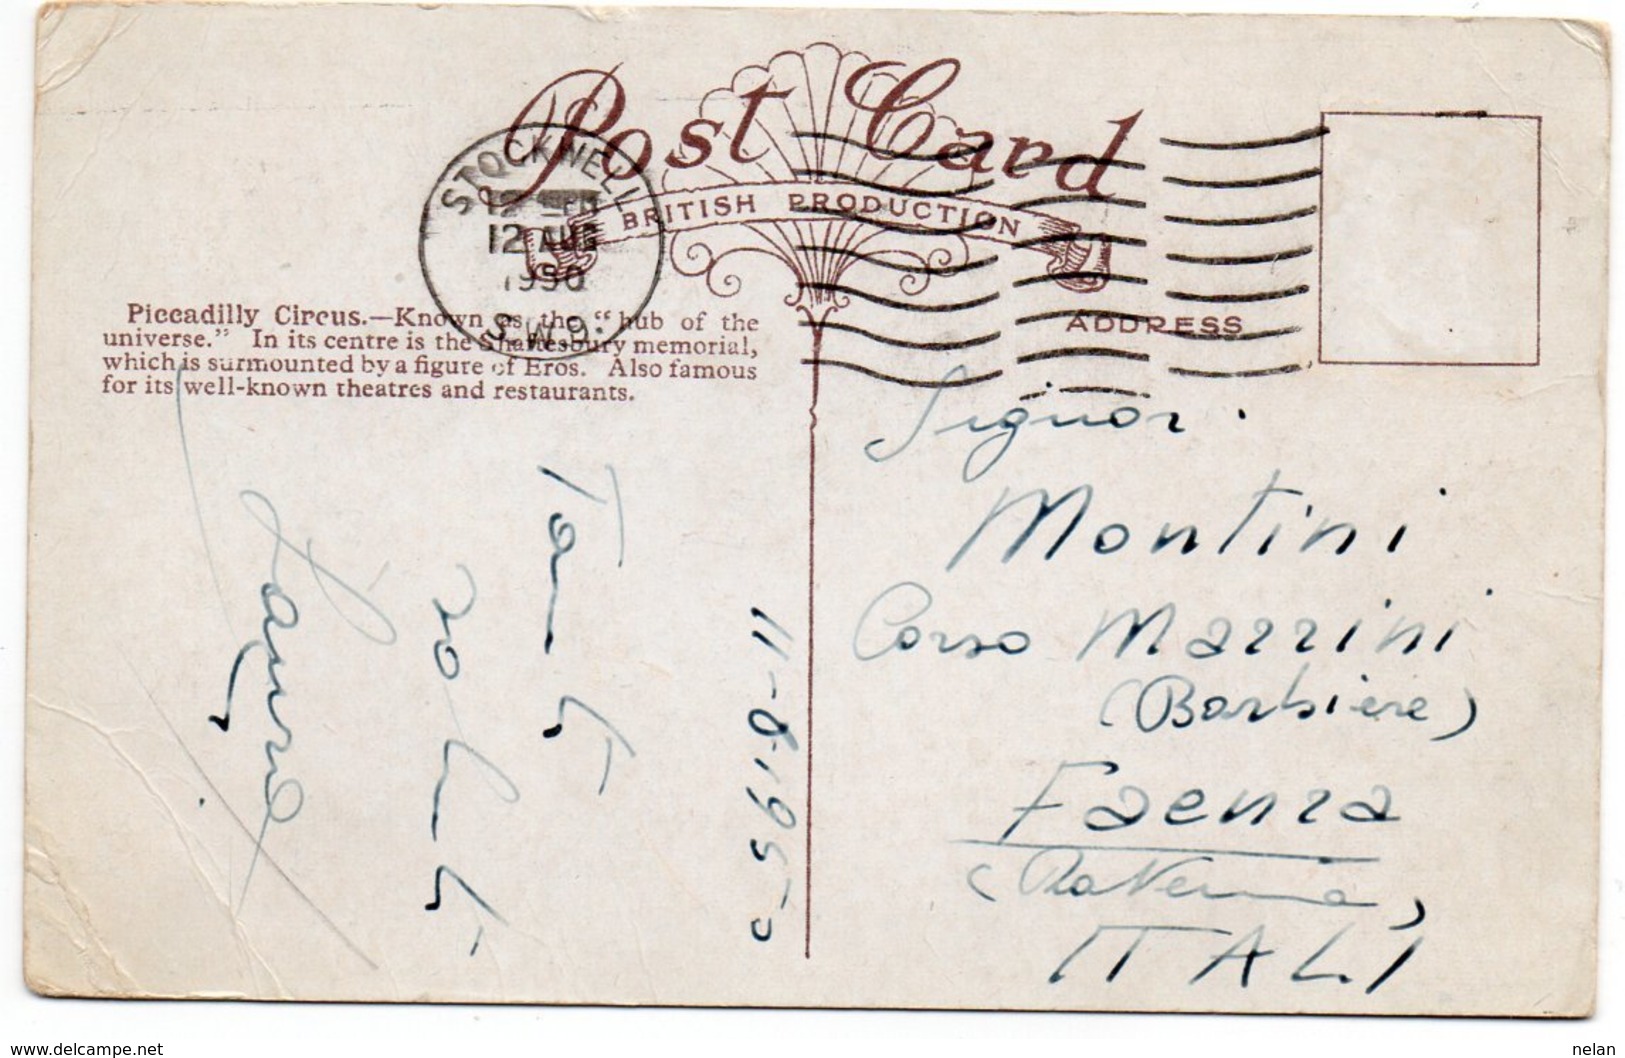 Post Card
BRITISH PRODUCTION
STOCKWELL
12 AUG
1950
S.W.9.
ADDRESS
Piccadilly Circus.—Known as the “hub of the
universe.” In its centre is the Shaftesbury memorial,
which is surmounted by a figure of Eros. Also famous
for its well-known theatres and restaurants.
11-8-1950
Tanti
saluti
Signor.
Montini
Corso Mazzini
(Barbiere)
Faenza
(Ravenna)
ITALI
www.delcampe.net
nelan